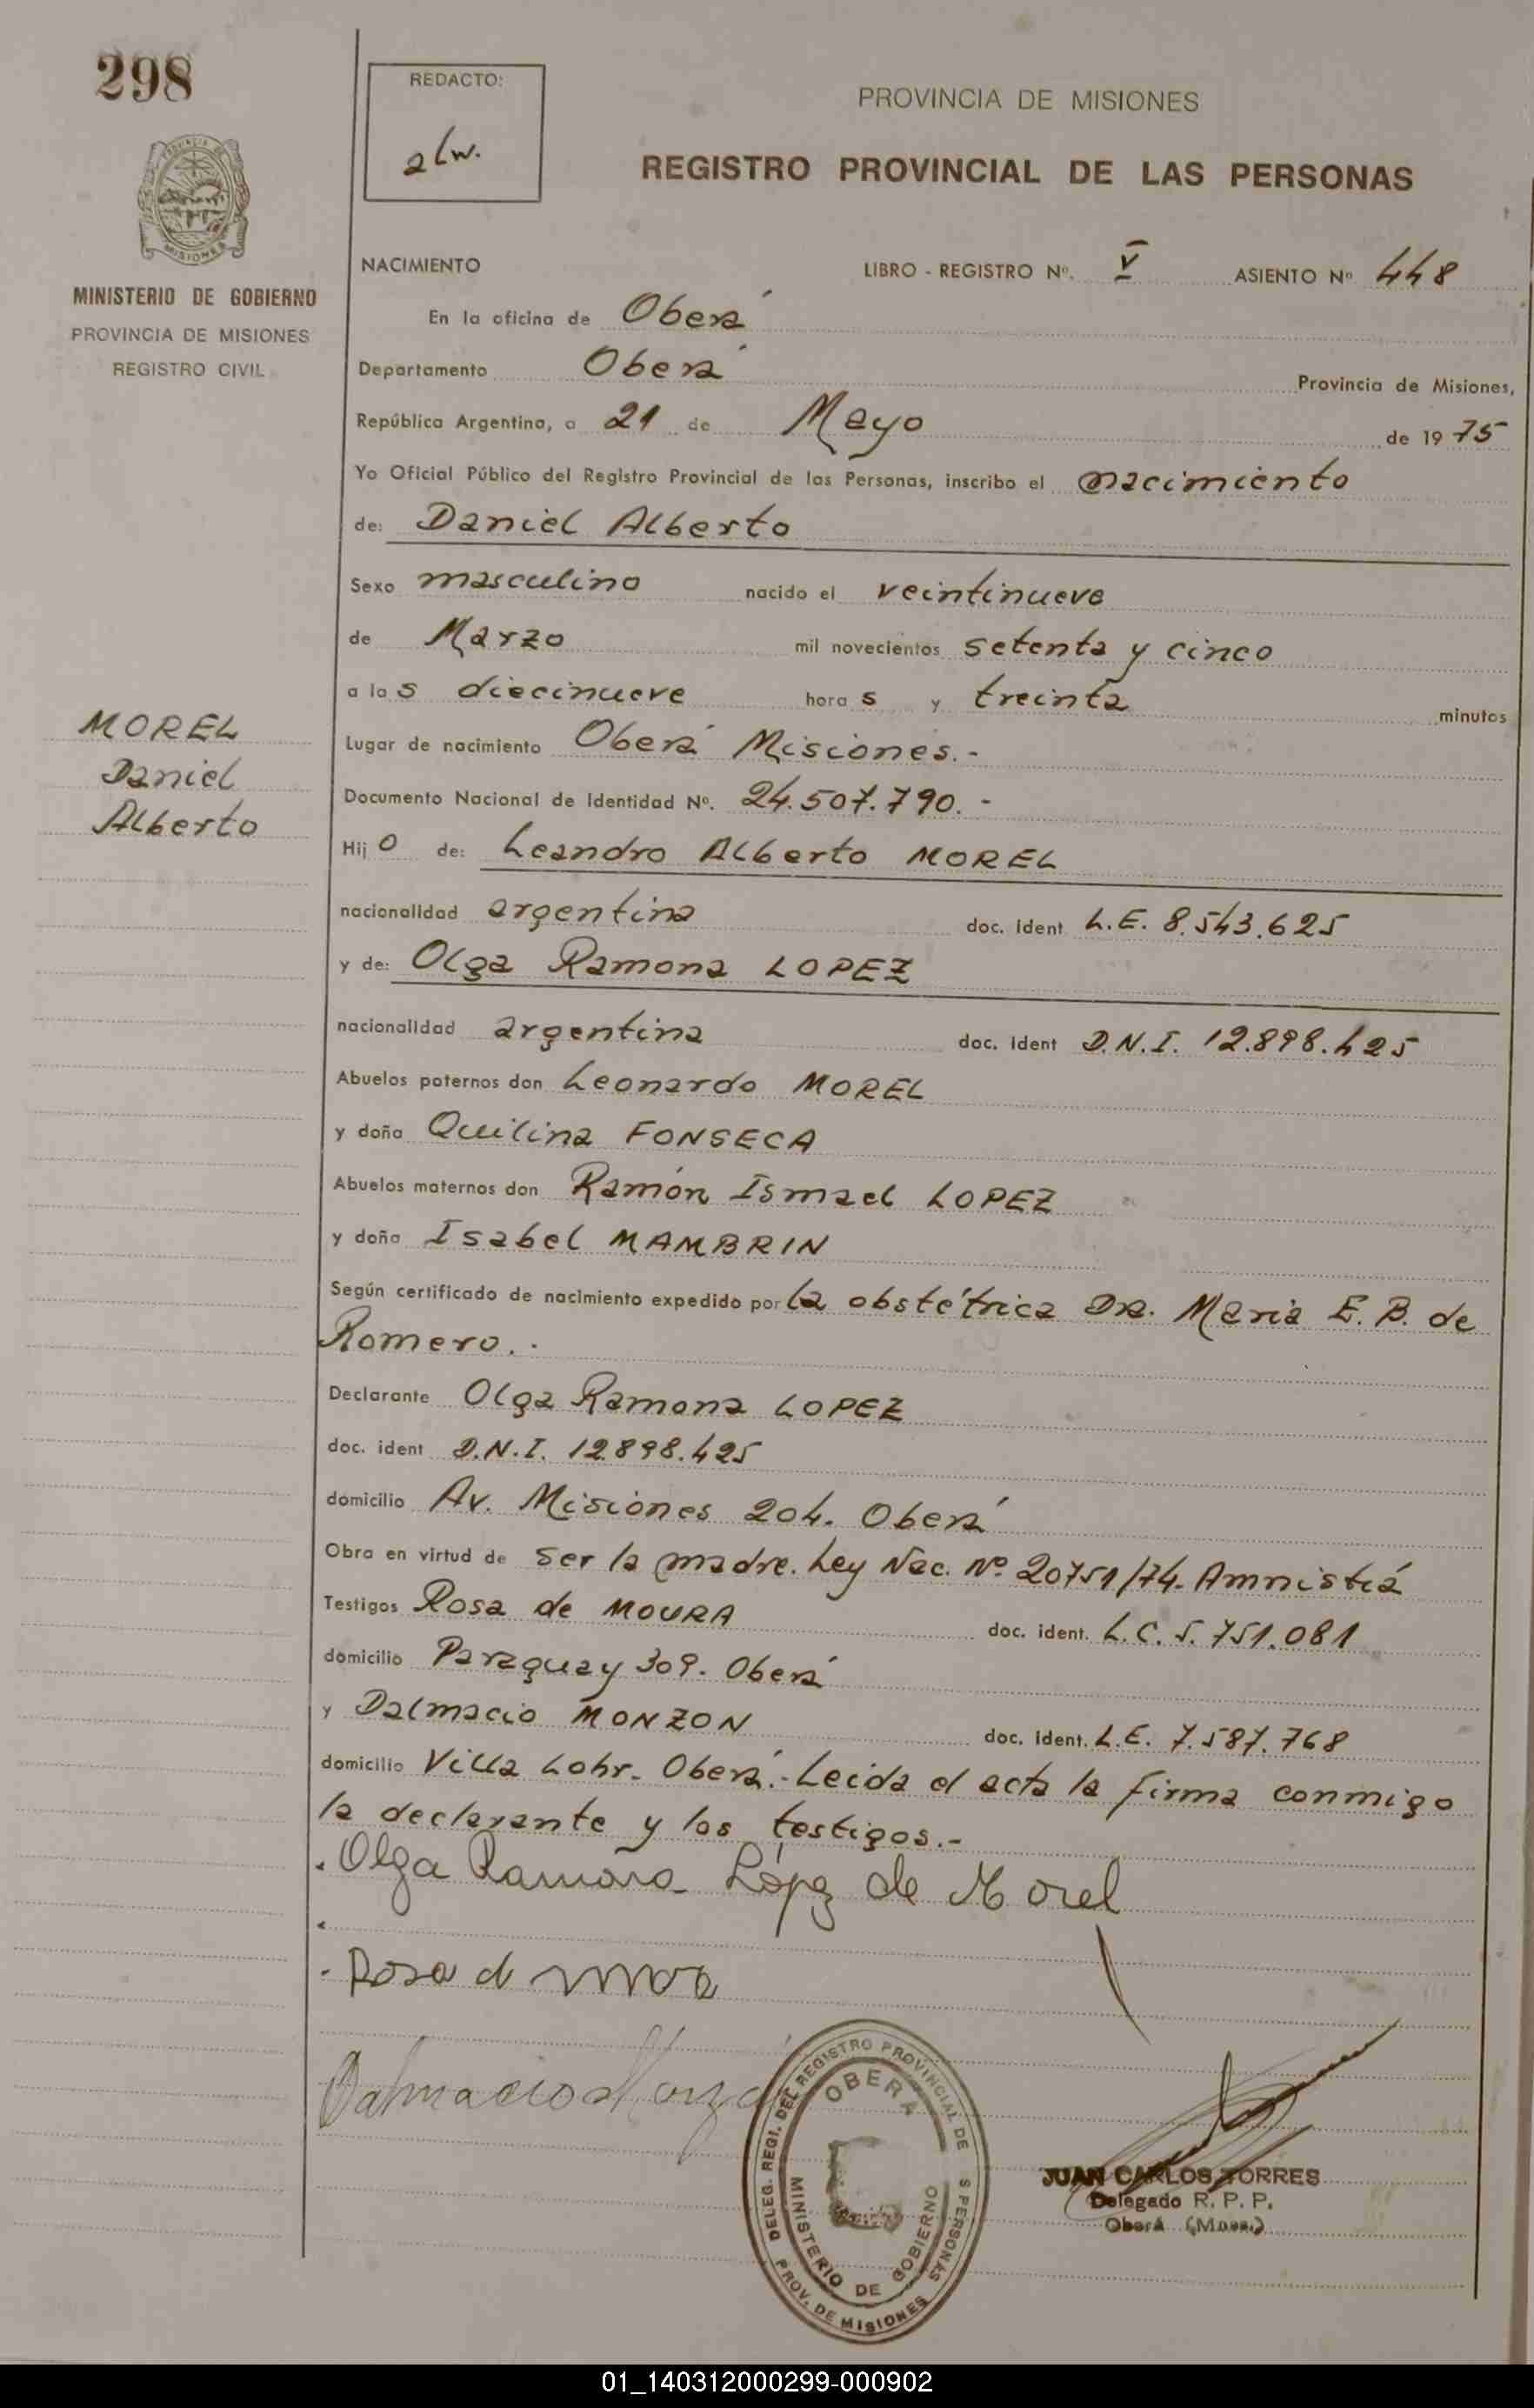 298
REDACTO:
alw.
PROVINCIA DE MISIONES
REGISTRO PROVINCIAL DE LAS PERSONAS
PROVINCIA DE
MISIONES
MINISTERIO DE GOBIERNO
PROVINCIA DE MISIONES
REGISTRO CIVIL
NACIMIENTO LIBRO - REGISTRO Nº. V ASIENTO Nº 448
En la oficina de Oberá
Departamento Oberá Provincia de Misiones,
República Argentina, a 21 de Mayo de 1975
Yo Oficial Público del Registro Provincial de las Personas, inscribo el nacimiento
de: Daniel Alberto
Sexo masculino nacido el veintinueve
de Marzo mil novecientos setenta y cinco
a las diecinueve horas y treinta minutos
MOREL
Daniel
Alberto
Lugar de nacimiento Oberá Misiones.-
Documento Nacional de Identidad Nº. 24.507.790.-
Hijo de: Leandro Alberto MOREL
nacionalidad argentina doc. ident L.E. 8.543.625
y de: Olga Ramona LOPEZ
nacionalidad argentina doc. ident D.N.I. 12.898.425
Abuelos paternos don Leonardo MOREL
y doña Quilina FONSECA
Abuelos maternos don Ramón Ismael LOPEZ
y doña Isabel MAMBRIN
Según certificado de nacimiento expedido por la obstétrica Dra. Maria E. B. de
Romero.-
Declarante Olga Ramona LOPEZ
doc. ident D.N.I. 12.898.425
domicilio Av. Misiones 204. Oberá
Obra en virtud de ser la madre. Ley Nac. Nº 20751/74. Amnistiá
Testigos Rosa de MOURA doc. ident. L.C. 5.751.081
domicilio Paraguay 309. Oberá
y Dalmacio MONZON doc. ident. L.E. 7.587.768
domicilio Villa Lohr. Oberá.- Leida el acta la firma conmigo
la declarante y los testigos.-
Olga Ramona López de Morel
Rosa d
Dalmacio Monzón
DELEG. REGI. DEL REGISTRO PROVINCIAL DE S PERSONAS
OBERA
MINISTERIO DE GOBIERNO
PROV. DE MISIONES
JUAN CARLOS TORRES
Delegado R. P. P.
Oberá (Mnes.)
01_140312000299-000902